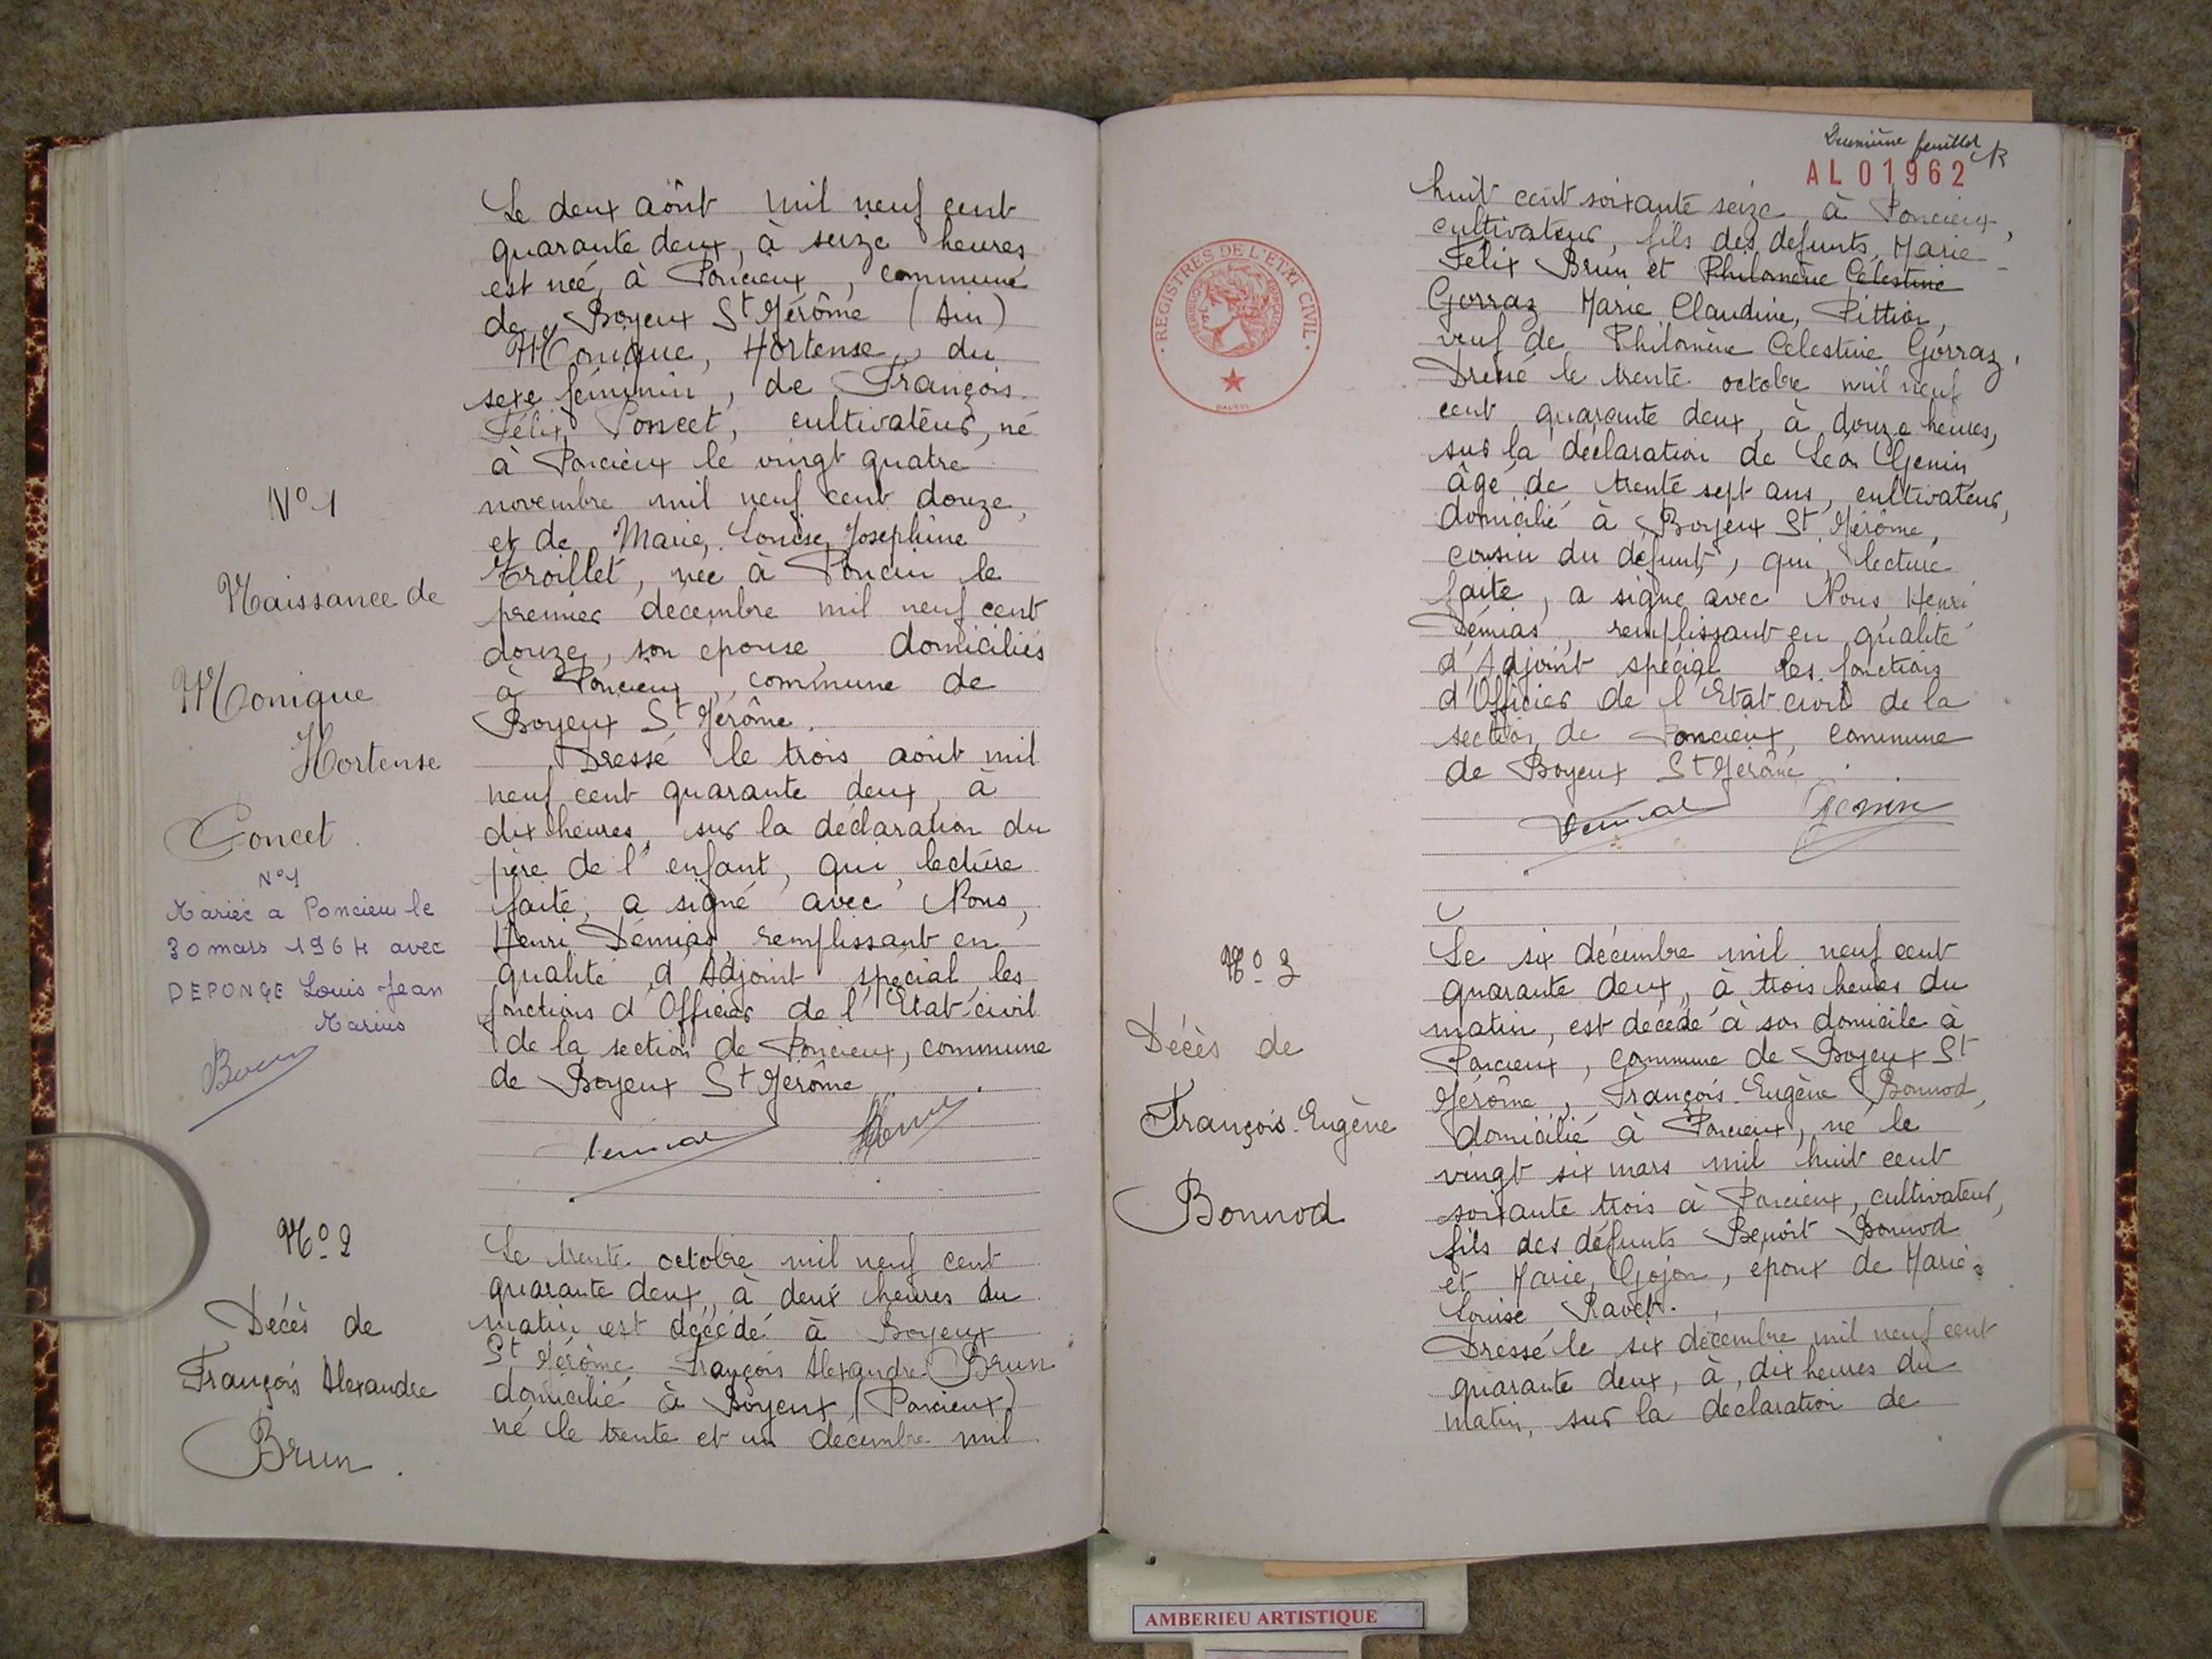 N° 1
Naissance de
Monique
Hortense
Poncet
N° 1
Mariée a Poncieux le
30 mars 1964 avec
DEPONGE Louis Jean
Marius
Le deux août mil neuf cent
quarante deux, à seize heures
est née, à Poncieux, commune
de Boyeux St Jérôme (Ain)
Monique, Hortense, du
sexe féminin, de François
Félix Poncet, cultivateur, né
à Poncieux le vingt quatre
novembre mil neuf cent douze,
et de Marie, Louise, Joséphine
Troillet, née à Poncin le
premier décembre mil neuf cent
douze, son epouse, domiciliés
à Poncieux, commune de
Boyeux St Jérôme.
Dressé le trois août mil
neuf cent quarante deux, à
dix heures, sur la déclaration du
père de l'enfant, qui, lecture
faite, a signé avec Nous,
Henri Démias, remplissant en
qualité d'Adjoint spécial, les
fonctions d'Officier de l'Etat-civil
de la section de Poncieux, commune
de Boyeux St Jérôme
N° 2
Décès de
François Alexandre
Brun.
Le trente octobre mil neuf cent
quarante deux, à deux heures du
matin est décédé à Boyeux
St Jérôme, François Alexandre Brun
domicilié à Boyeux (Poncieux)
né le trente et un décembre mil
Deuxième feuillet
AL 01962
REGISTRES DE L'ETAT CIVIL
huit cent soixante seize, à Poncieux,
cultivateur, fils des defunts, Marie-
Félix Brun et Philomène Célestine
Gorraz Marie Claudine, Pittion,
veuf de Philomène Celestine Gorraz.
Dressé le trente octobre mil neuf
cent quarante deux, à douze heures,
sur la déclaration de Léon Genin
âgé de trente sept ans, cultivateur,
domicilié à Boyeux St Jérôme,
cousin du défunt, qui, lecture
faite, a signé avec Nous Henri
Démias, remplissant en qualité
d'Adjoint spécial les fonctions
d'Officier de l'Etat civil de la
section de Poncieux, commune
de Boyeux St Jérôme
Genin
N° 3
Décès de
François-Eugène
Bonnod
Le six décembre mil neuf cent
quarante deux, à trois heures du
matin, est décédé à son domicile à
Poncieux, commune de Boyeux St
Jérôme, François-Eugène Bonnod,
domicilié à Poncieux, né le
vingt six mars mil huit cent
soixante trois à Poncieux, cultivateur,
fils des défunts Benoît Bonnod
et Marie Gojon, epoux de Marie-
Louise Ravet.
Dressé le six décembre mil neuf cent
quarante deux, à dix heures du
matin, sur la déclaration de
AMBERIEU ARTISTIQUE